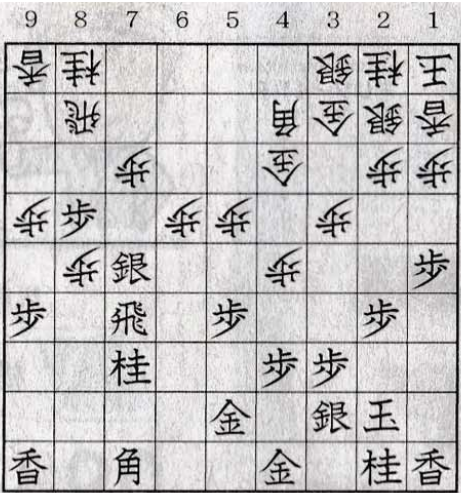 9 8 7 6 5 4 3 2 1
香 桂 銀 桂 王
飛 角 金 銀 香
歩 金 歩 歩
歩 歩 歩 歩 歩
歩 銀 歩 歩
歩 飛 歩 歩
桂 歩 歩
金 銀 玉
香 角 金 桂 香